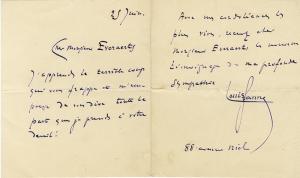 25 Juin.
Cher Monsieur Evenaerts
J'apprends le terrible coup
qui vous frappe et m'em-
presse de vous dire toute la
part que je prends à votre
deuil!
Avec mes condoléances les
plus vives, recevez cher
Monsieur Evenaerts le nouveau
témoignage de ma profonde
Sympathie
Louis Ganne
88 avenue Niel